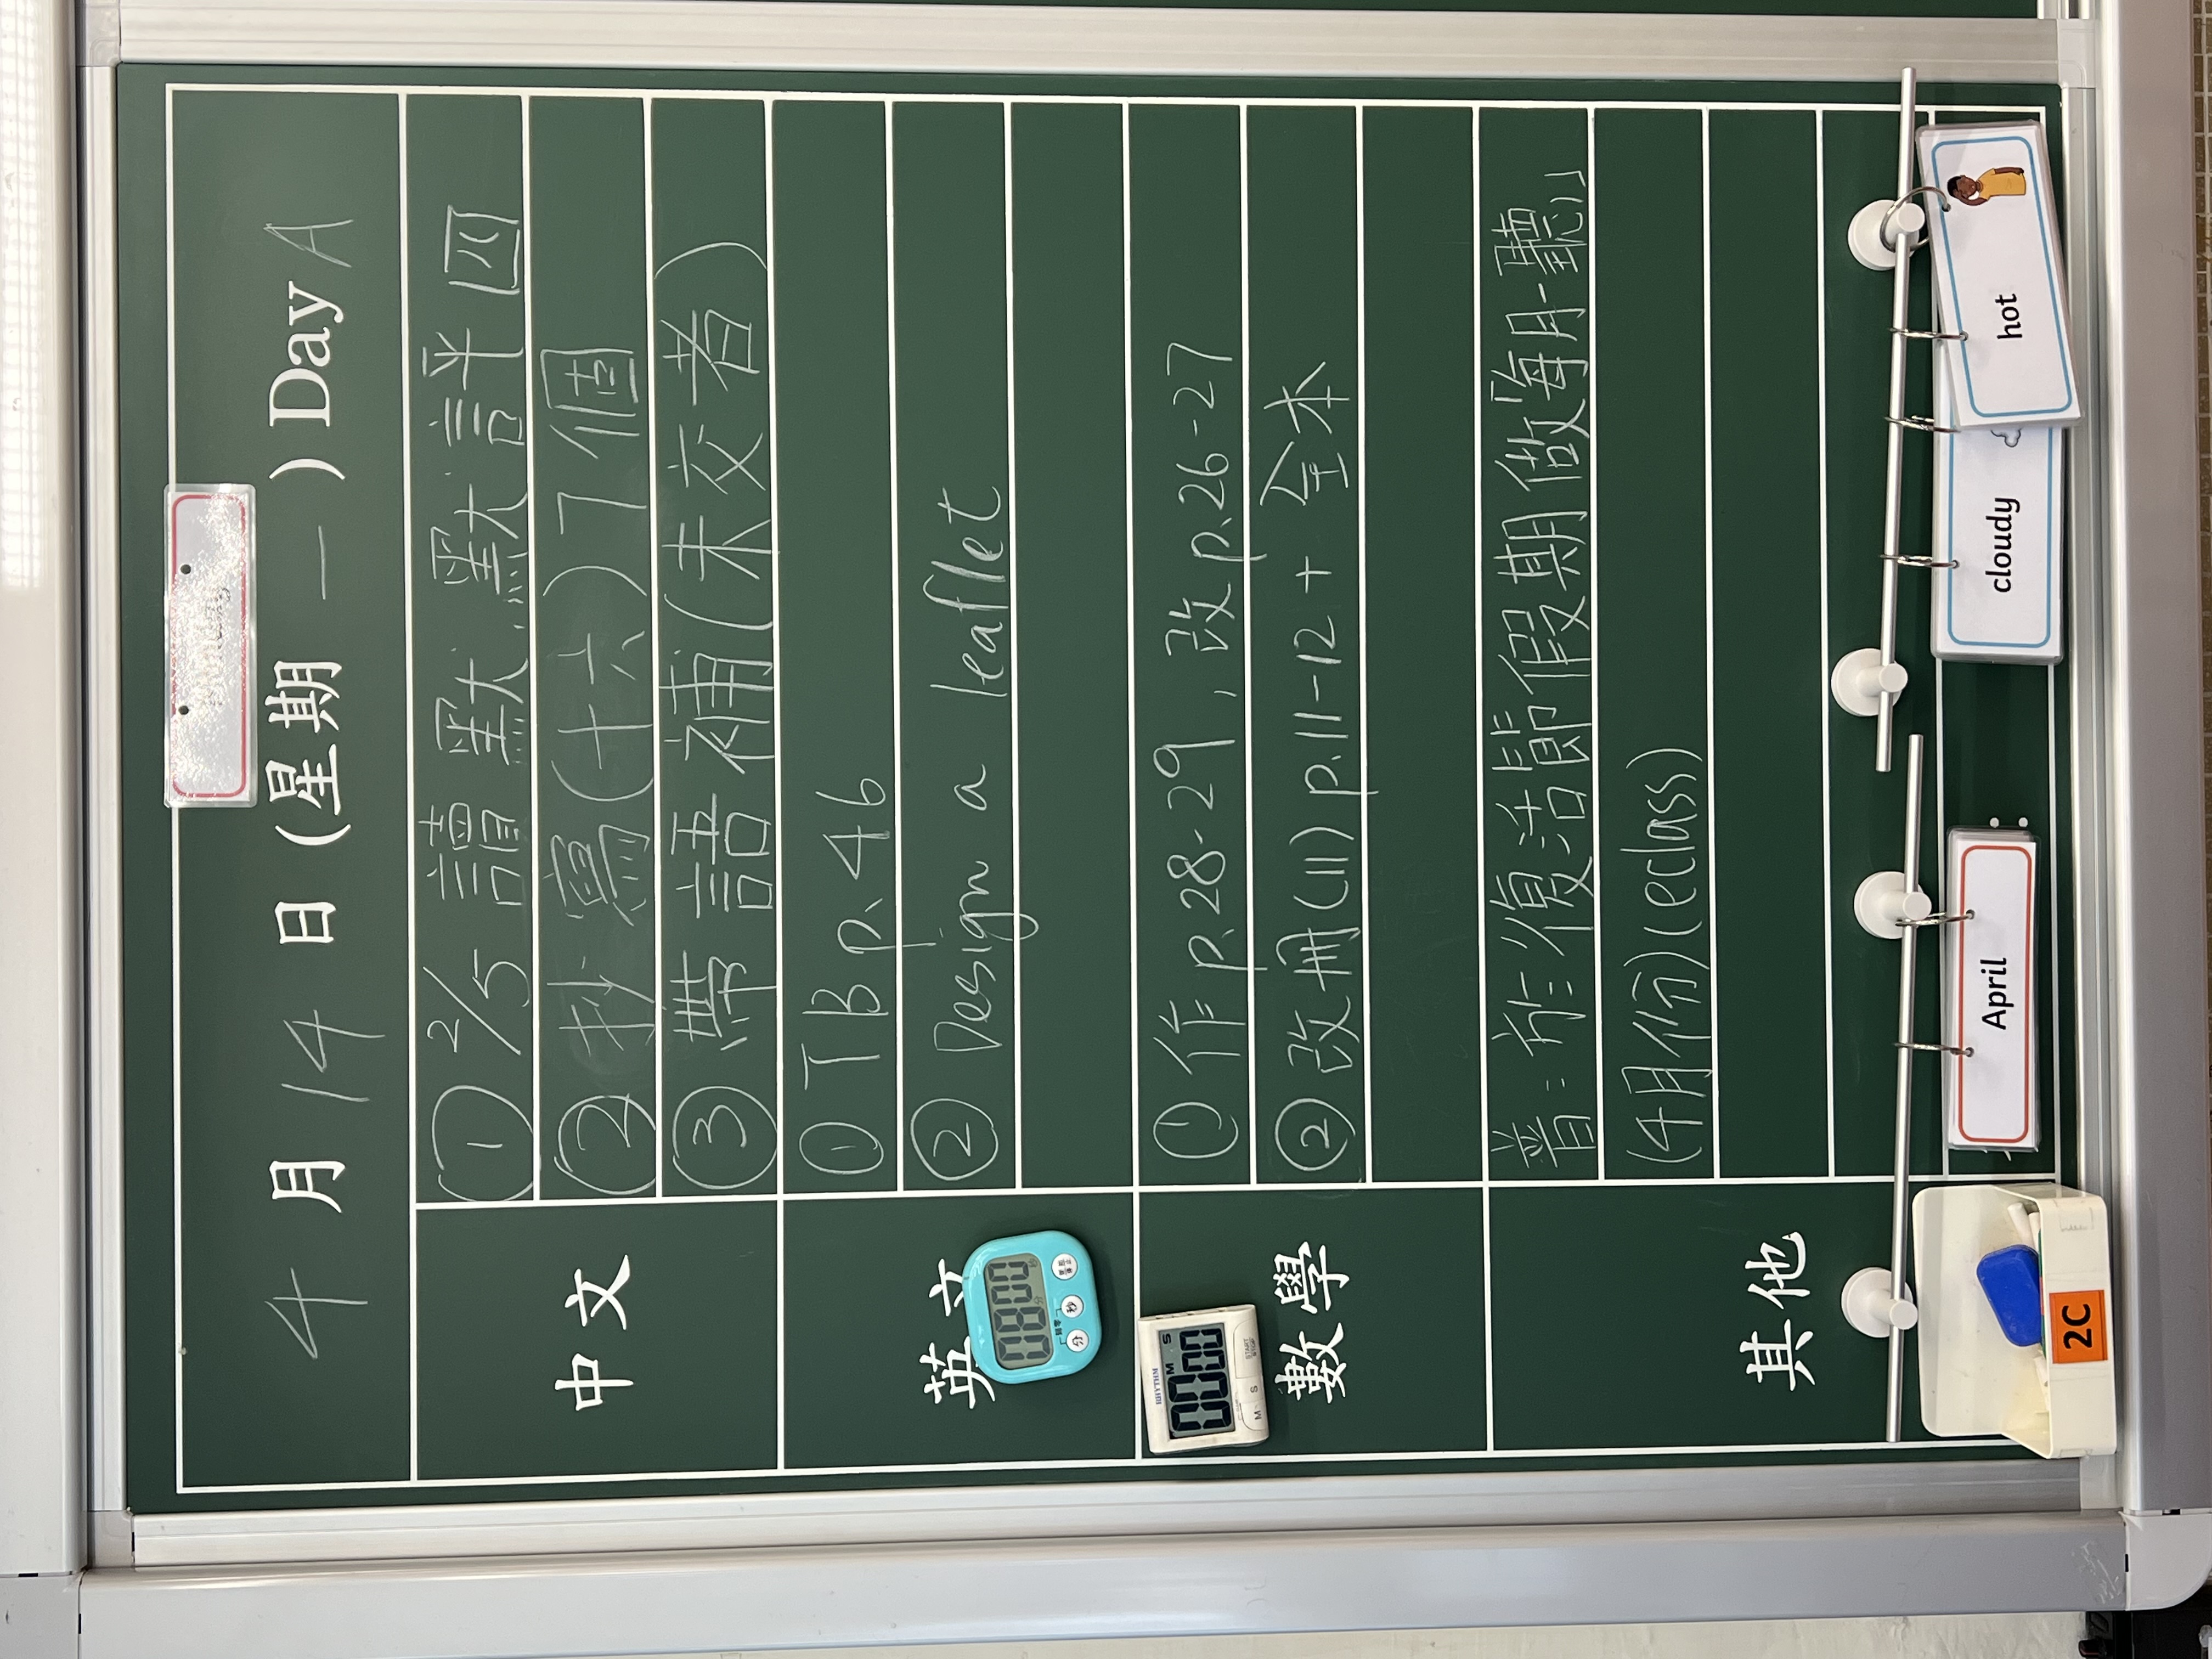 4 月 14 日 (星期 一 ) Day A
中文
① 2/5 讀默.默言半四
② 抄寫(十六) 7個
③ 帶語補(未交者)
英文
① TB p.46
② Design a leaflet
數學
① 作 p.28-29, 改 p.26-27
② 改冊(11) p.11-12 + 全本
其他
普：於復活節假期做「每月一聽」
(4月份)(eclass)
hot
cloudy
April
2C
08:00
分
秒
RHYTHM
M S
00 00
M S
START